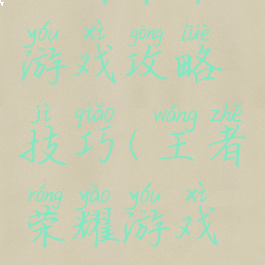 yóu xì gōng lüè
游戏攻略
jì qiǎo ( wáng zhě
技巧(王者
róng yào yóu xì
荣耀游戏